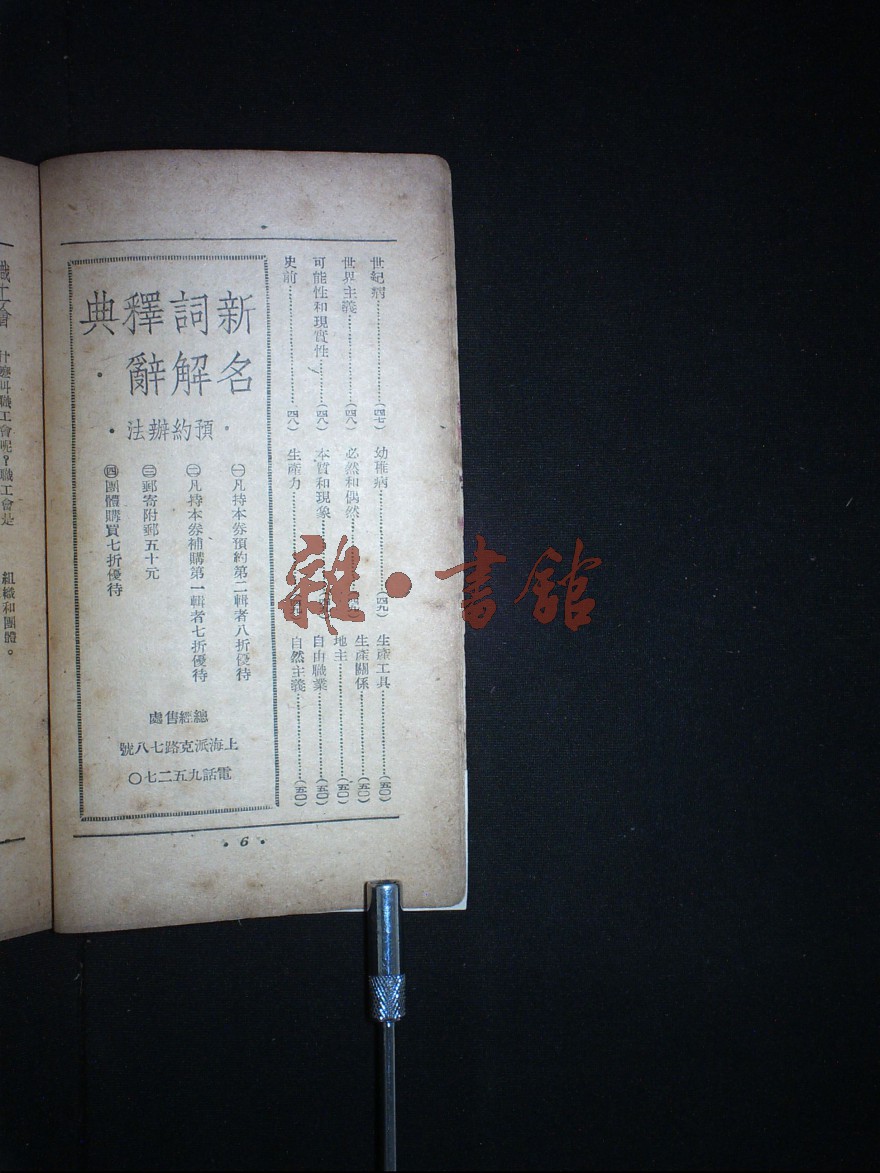 世紀病……(四七)
世界主義……(四八)
可能性和現實性……(四八)
史前……(四八)
幼稚病……(四九)
必然和偶然……
本質和現象……
生產力……
生產工具……(五〇)
生產關係……(五〇)
地主……(五〇)
自由職業……(五〇)
自然主義……(五〇)
新名詞解釋辭典
·預約辦法·
㊀凡持本券預約第二輯者八折優待
㊁凡持本券補購第一輯者七折優待
㊂郵寄附郵五十元
㊃團體購買七折優待
總經售處
上海派克路七八號
電話九五二七〇
·6·
什麼叫職工會呢？職工會是
組織和團體。
雜·書館